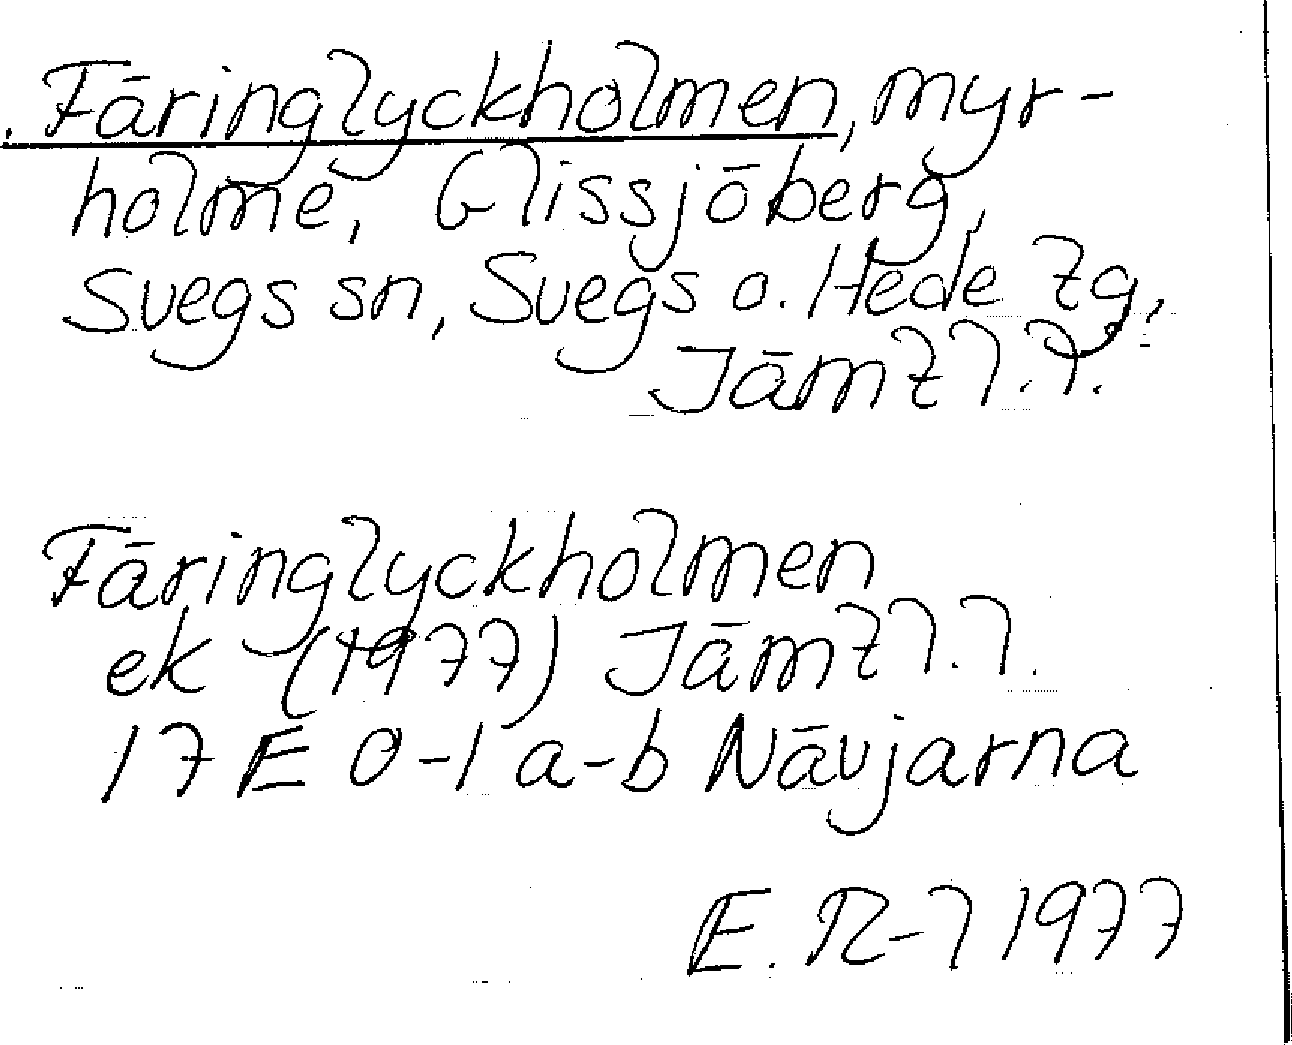 Färinglyckholmen, myr-
holme, Glissjöberg,
Svegs sn, Svegs o. Hede tg,
Jämtl.l.
Färinglyckholmen
ek (1977) Jämtl.l.
17 E 0-1 a-b Nävjarna
E. R-l 1977